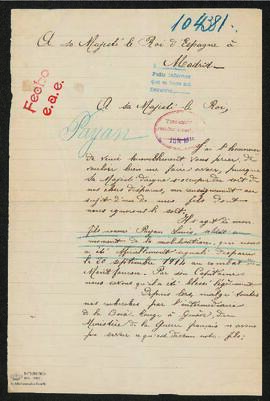 104381.
A sa Majesté le Roi d'Espagne à
Madrid.
Fecho
e.a.e.
A sa Majesté le Roi,
Payan
J'ai l'honneur
de venir vous prier de
vouloir bien me faire avoir, puisque
Sa Majesté daigne s'occuper du sort de
nos chers disparus, un renseignement au
sujet d'un de mes fils dont
nous ignorons le sort.
Il s'agit de mon
fils nommé Payan Louis,
moment de la mobilisation, qui nous
a été signalé disparu
le 20 Septembre 1914 au combat de
Par son Capitaine
nous avons qu'il a été blessé légèrement
Depuis lors, malgré toutes
nos recherches par l'intermédiaire
de la Croix Rouge à Genève, du
Ministère de la Guerre français
pu savoir ce qu'est devenu notre fils.